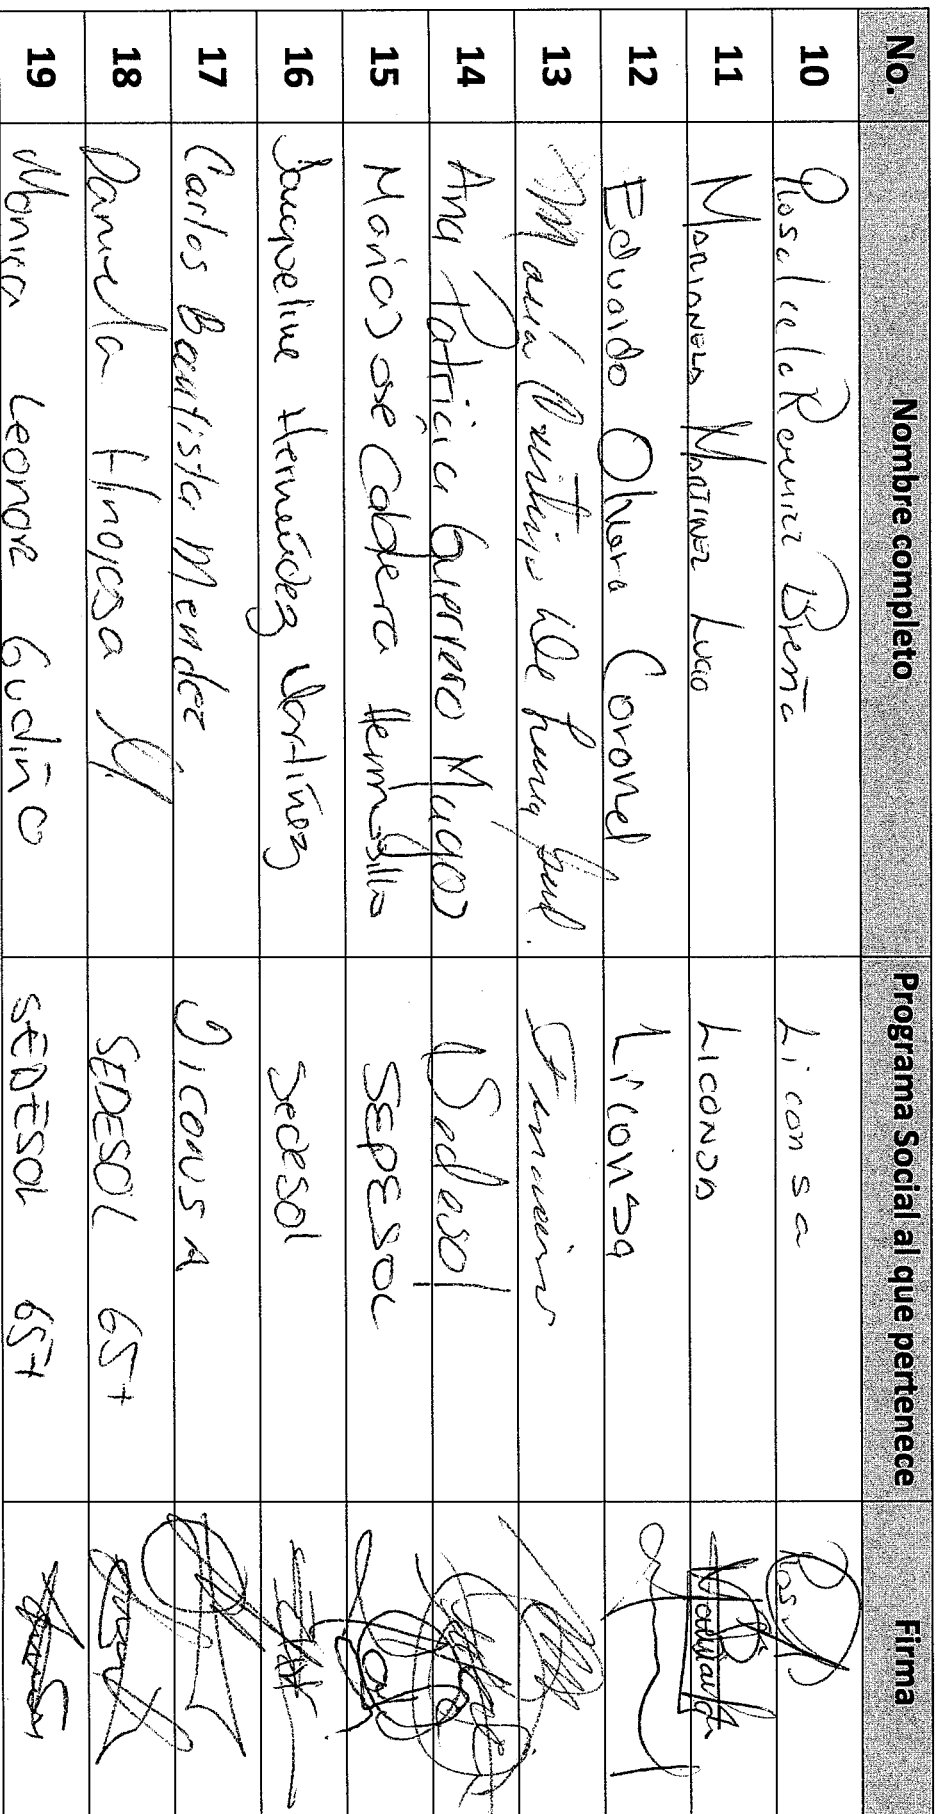 No. Nombre completo Programa Social al que pertenece Firma
10 Rosalcela Ramirez Breña Liconsa
11 MARIANELA MARTINEZ LUCIO LICONSA
12 Eduardo Olvera Coronel Liconsa
13 Maria De
14 Ana Patricia Guerrero Mugos Sedesol
15 Maria José Cabrera Hermosillo SEDESOL
16 Jacqueline Hernández Martínez Sedesol
17 Carlos Bautista Mendez DICONSA
18 Daniela Hinojosa M SEDESOL 65+
19 Monica Leonor Gudiño SEDESOL 65+